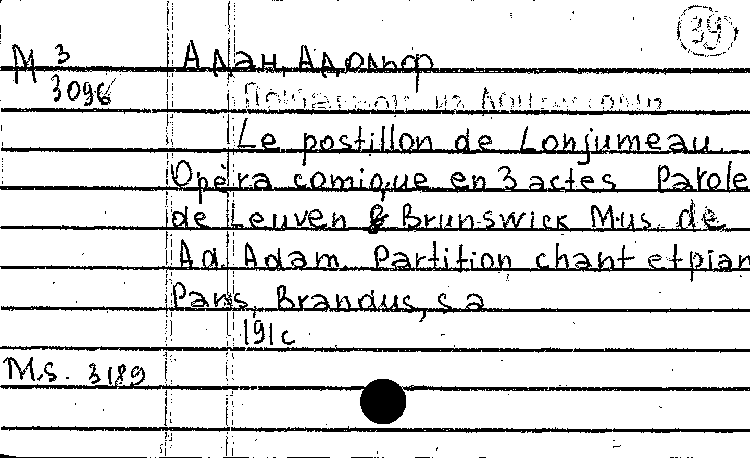 39
М 3 Адан, Адольф
3096
Le postillon de Lonjumeau
Opéra comique en 3 actes Parole
de Leuven & Brunswick Mus. de
Ad. Adam. Partition chant et pian
Paris, Brandus, s a
191 с
M.s. 3189